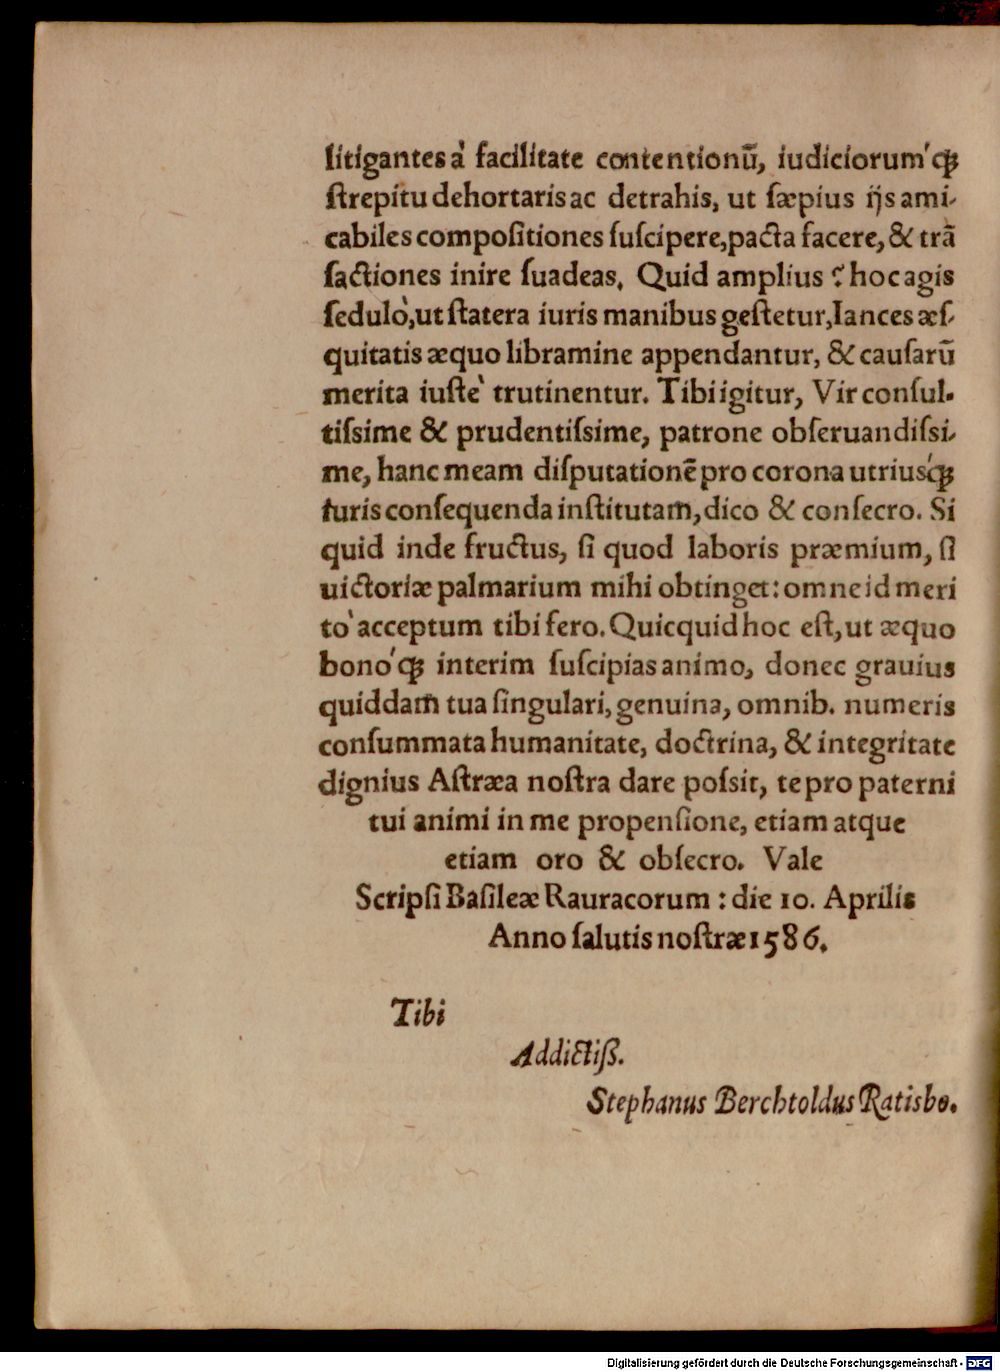 litigantes à facilitate contentionū, iudicioruḿq;
ſtrepitu dehortaris ac detrahis, ut ſæpius ijs ami-
cabiles compoſitiones ſuſcipere, pacta facere, & trā
ſactiones inire ſuadeas. Quid amplius? hoc agis
ſedulò, ut ſtatera iuris manibus geſtetur, lances æſ-
quitatis æquo libramine appendantur, & cauſarū
merita iuſtè trutinentur. Tibi igitur, Vir conſul-
tiſsime & prudentiſsime, patrone obſeruandiſsi-
me, hanc meam diſputationē pro corona utriusq́;
iuris conſequenda inſtitutam̃, dico & conſecro. Si
quid inde fructus, ſi quod laboris præmium, ſi
uictoriæ palmarium mihi obtinget: omne id meri
tò acceptum tibi fero. Quicquid hoc eſt, ut æquo
bonóq; interim ſuſcipias animo, donec grauius
quiddam̃ tua ſingulari, genuina, omnib. numeris
conſummata humanitate, doctrina, & integritate
dignius Aſtræa noſtra dare poſsit, te pro paterni
tui animi in me propenſione, etiam atque
etiam oro & obſecro. Vale
Scripſi Baſileæ Rauracorum: die 10. Aprilis
Anno ſalutis noſtræ 1586.
Tibi
Addictiß.
Stephanus Berchtoldus Ratisbo.
Digitalisierung gefördert durch die Deutsche Forschungsgemeinschaft - DFG